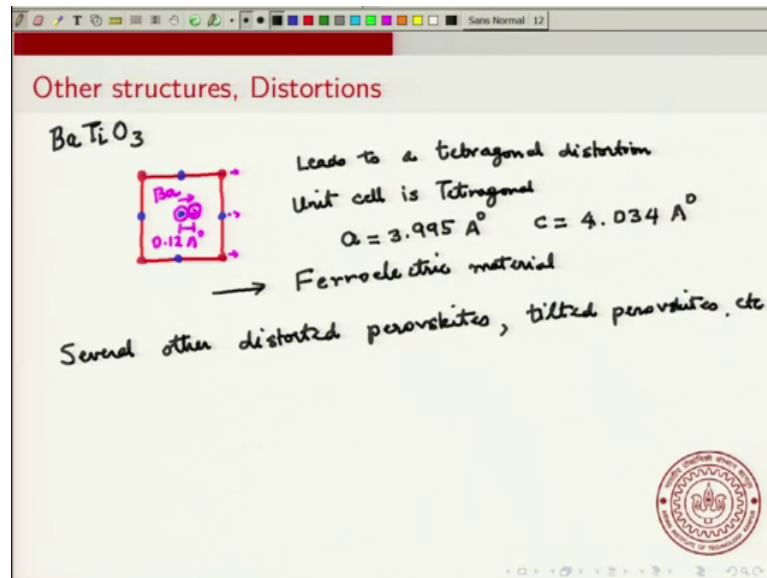 Sans Normal 12
Other structures, Distortions
BaTiO3
Leads to a tetragonal distortion
Unit cell is Tetragonal
a = 3.995 A° c = 4.034 A°
Ba
0.12 A°
→ Ferroelectric material
Several other distorted perovskites, tilted perovskites, etc